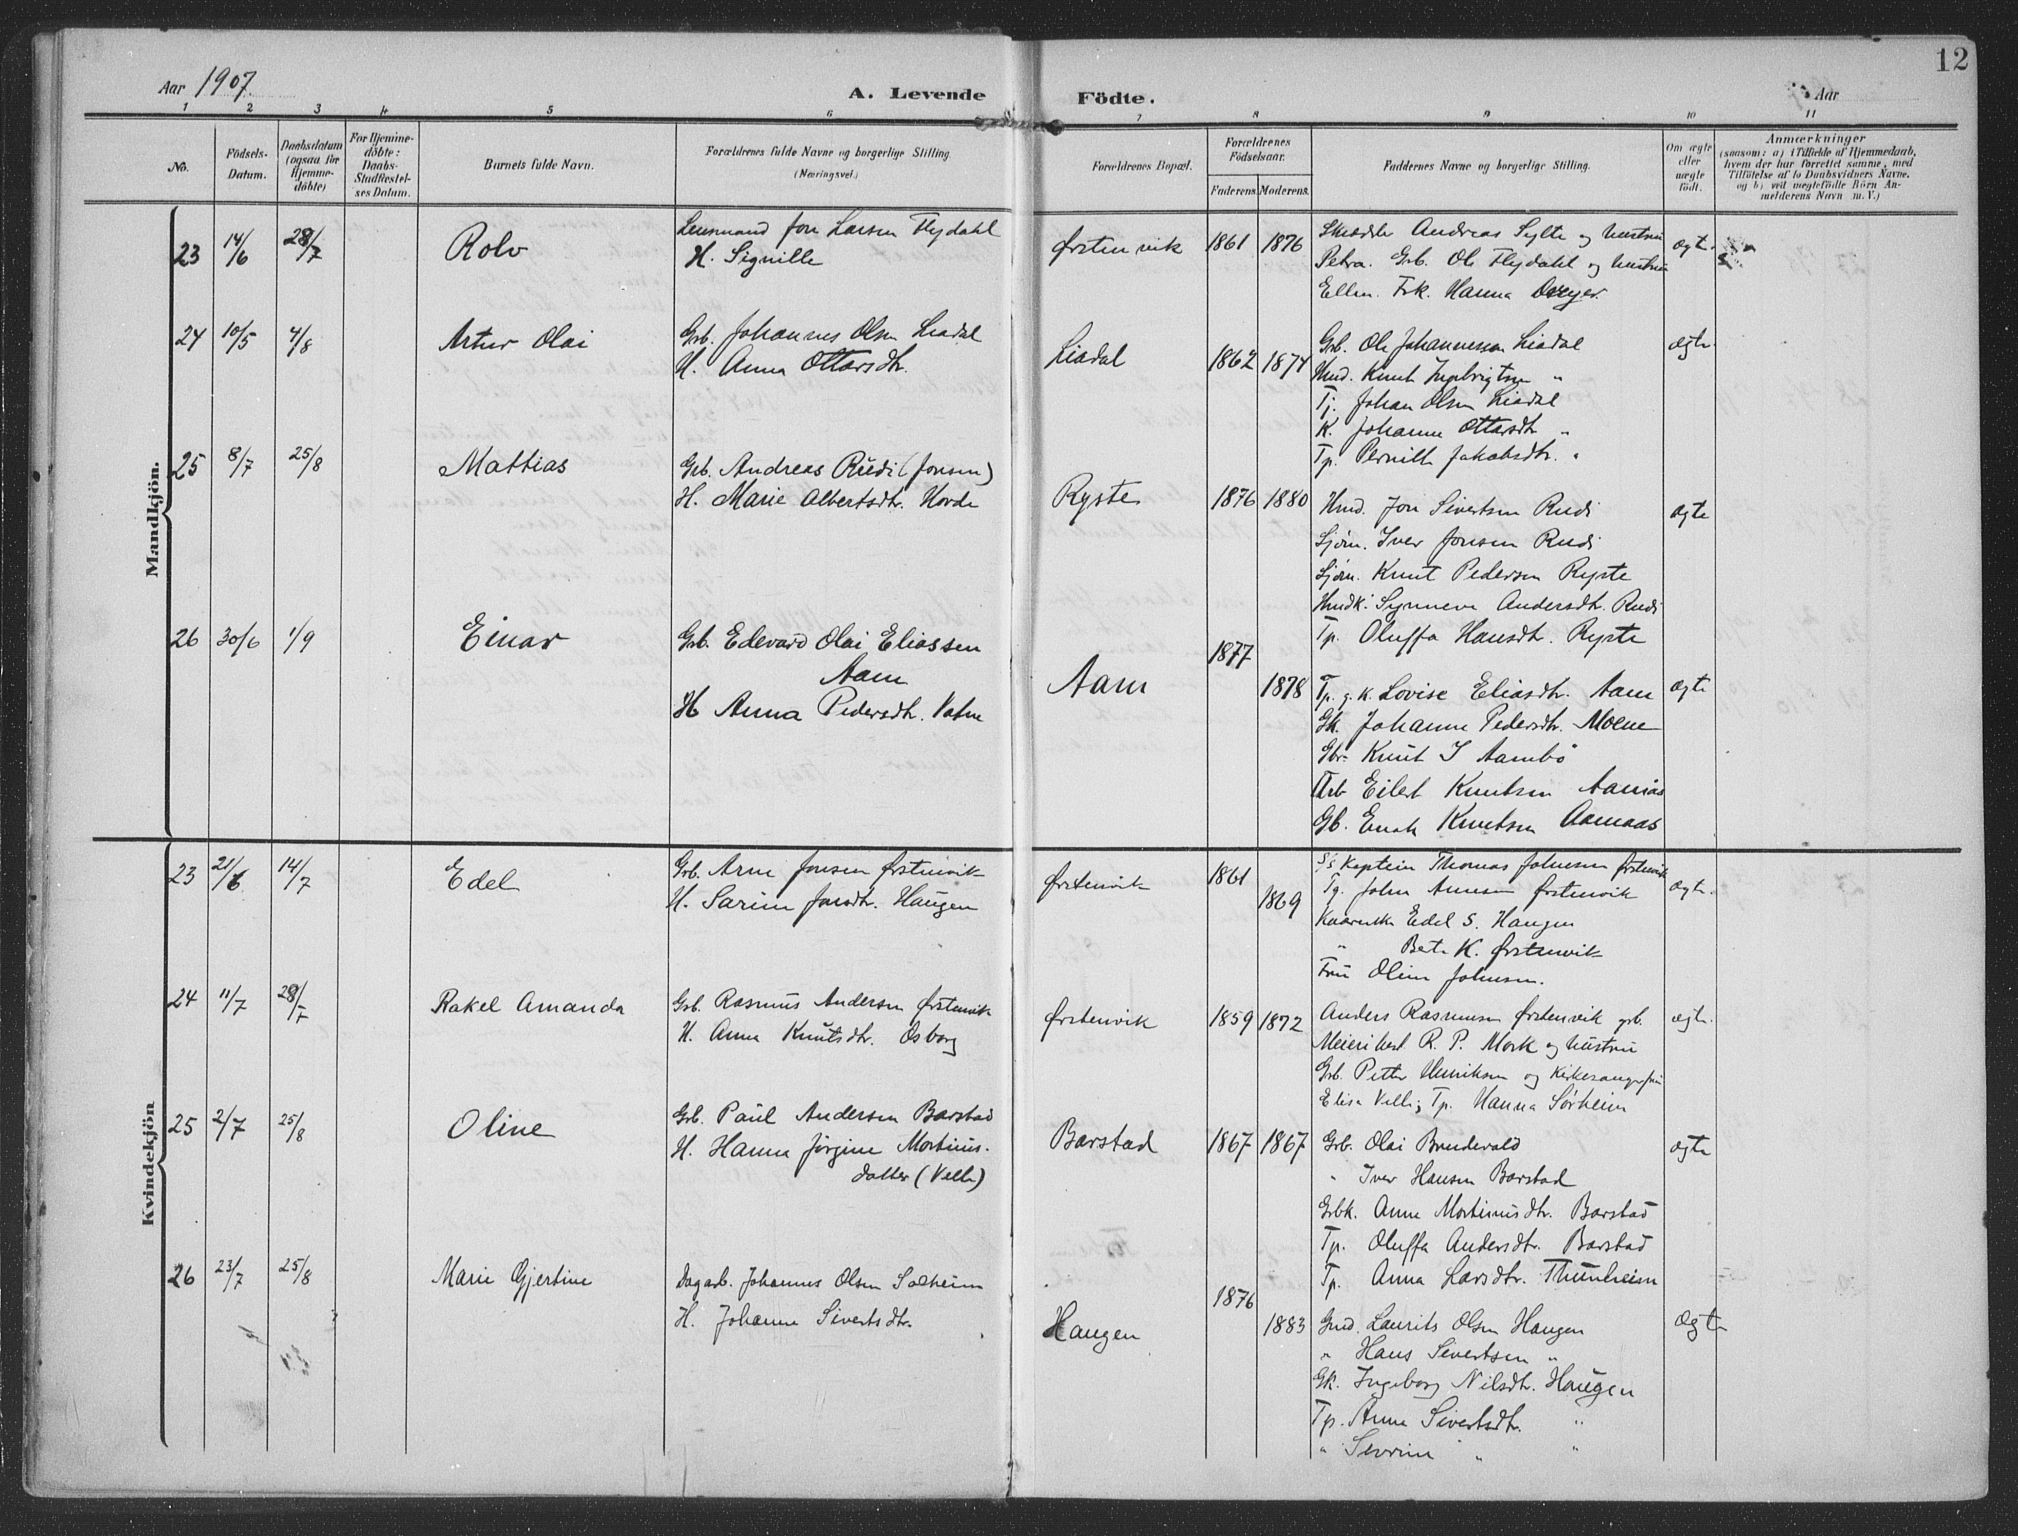 12
Aar 1907.
A. Levende Födte.
Aar
1 2 3 4 5 6 7 8 9 10 11
No.
Födsels-
Datum.
Daabsdatum
(ogsaa for
Hjemme-
döbte)
For Hjemme-
döbte:
Daabs-
Stadfæstel-
ses Datum.
Barnets fulde Navn.
Forældrenes fulde Navne og borgerlige Stilling
(Næringsvei.)
Forældrenes Bopæl.
Forældrenes
Födselsaar.
Faderens. Moderens.
Faddernes Navne og borgerlige Stilling.
Om ægte
eller
uægte
født.
Anmærkninger
(saasom: a) i Tilfælde af Hjemmedaab,
hvem der har forrettet samme, med
Tilföielse af to Daabsvidners Navne.
og b) ved uegtefödte Börn An-
melderens Navn m. V.)
Mandkjön.
23 14/6 28/7 Rolv
Lensmand Jon Larsen Flydahl
H. Signille
Ørstenvik 1861 1876
Andreas Sylte og Hustru
Petra. Grb. Ole Flydahl og Hustru
Ellen. Frk. Hanna Dreyer.
ægte
24 10/5 4/8 Artur Olai
Grb. Johannes Olsen Liadal
H. Anna Ottarsdtr.
Liadal 1862 1874
Grb. Ole Johannessen Liadal
Hmd. Knut Ingebrigtsen "
Tj. Johan Olsen Liadal
K. Johanne Ottarsdtr "
Tp. Pernille Jakobsdtr. "
ægte
25 8/7 25/8 Mattias
Grb. Andreas Rudi (Jonsen)
H. Marie Albertsdtr. Hovde
Ryste 1876 1880
Hmd. Jon Sivertsen Rudi
Sjøm. Iver Jonsen Rudi
Sjøm. Knut Pedersen Ryste
Hmdk. Synneve Andersdtr. Rudi
Tp. Oluffa Hansdtr. Ryste
ægte
26 30/6 1/9 Einar
Grb. Edevard Olai Eliassen
Aam
H Anna Pedersdtr. Vatne
Aam 1877 1878
Tp. g. k. Lovise Eliasdtr. Aam
Gk. Johanne Pedersdtr. Moene
Gbr. Knut I Aambø
Arb Eilert Knutsen Aamaas
Gb. Enok Knutsen Aamaas
ægte
Kvindekjön
23 21/6 14/7 Edel
Grb. Arne Jonsen Ørstenvik
H. Sarine Jonsdtr. Haugen
Ørstenvik 1861 1869
S/S Kaptein Thomas Johnsen Ørstenvik
Tg. John Arnesen Ørstenvik
Edel S. Haugen
" Berte K. Ørstenvik
Fru Oline Johnsen.
ægte.
24 11/7 28/7 Rakel Amanda
Grb. Rasmus Andersen Ørstenvik
H. Anna Knutsdtr. Osborg
Ørstenvik 1859 1872
Anders Rasmussen Ørstenvik grb.
Meieribest R. P. Mork og Hustru
Grb. Petter Henriksen og Kirkesangerfru
Elisa Velle; Tp. Hanna Sørheim
ægte.
25 2/7 25/8 Oline
Grb. Paul Andersen Barstad
H. Hanna Jørgine Mortinus-
datter (Velle)
Barstad 1867 1867
Grb. Olai Brudevold
" Iver Hansen Barstad
Grbk. Anne Mortinusdtr. Barstad
Tp. Oluffa Andersdtr. Barstad
Tp. Anna Larsdtr. Thunheim
ægte
26 23/7 25/8 Marie Gjertine
Dagarb. Johannes Olsen Solheim
H. Johanne Sivertsdtr.
Haugen 1876 1883
Gmd. Laurits Olsen Haugen
" Hans Sivertsen "
Gk. Ingeborg Nilsdtr. Haugen
Tp. Anna Sivertsdtr. "
" Sevrine " "
ægte